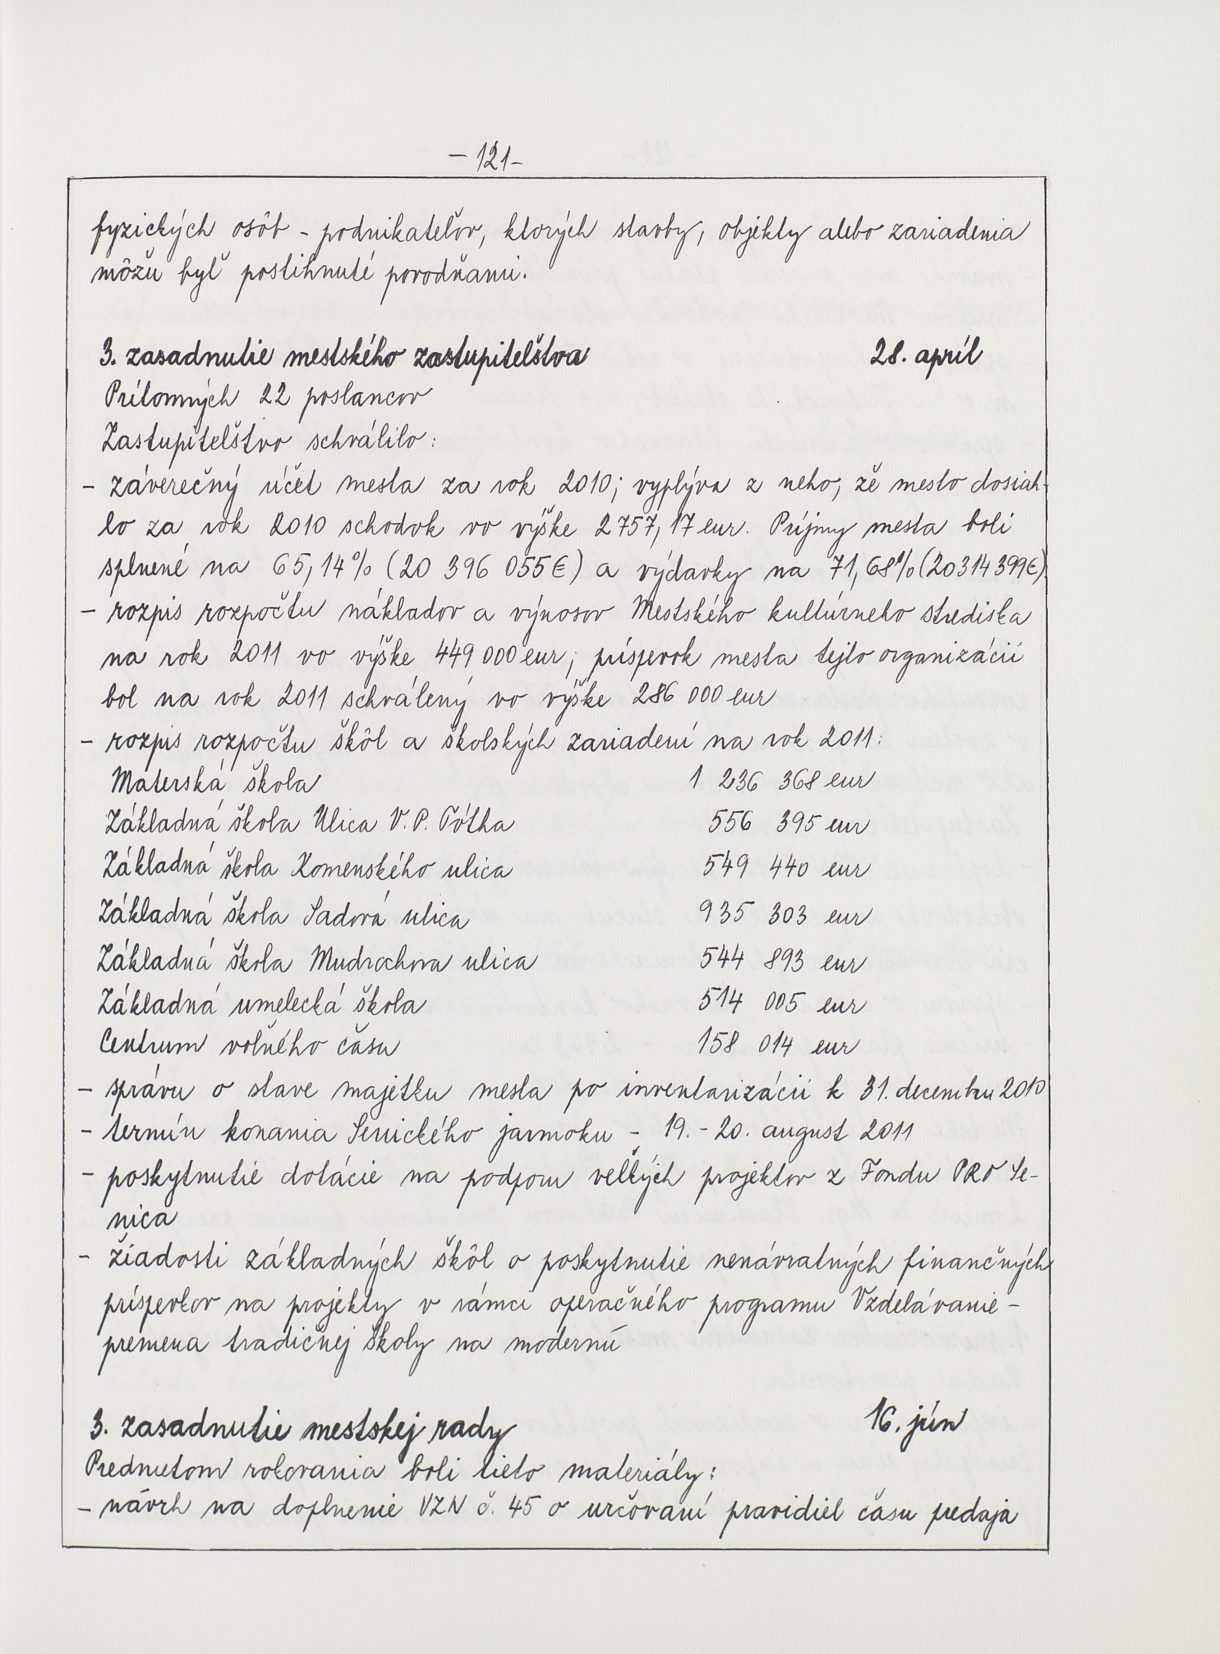 - 121 -
fyzických osôb - podnikateľov, ktorých stavby, objekty alebo zariadenia
môžu byť postihnuté povodňami.
3. zasadnutie mestského zastupiteľstva 28. apríl
Prítomných 22 poslancov
Zastupiteľstvo schválilo:
- záverečný účet mesta za rok 2010; vyplýva z neho, že mesto dosiah-
lo za rok 2010 schodok vo výške 2 757,17 eur. Príjmy mesta boli
splnené na 65,14% (20 396 055€) a výdavky na 71,68% (20 314 399€)
- rozpis rozpočtu nákladov a výnosov Mestského kultúrneho strediska
na rok 2011 vo výške 449 000 eur; príspevok mesta tejto organizácii
bol na rok 2011 schválený vo výške 286 000 eur
- rozpis rozpočtu škôl a školských zariadení na rok 2011:
Materská škola 1 236 368 eur
Základná škola Ulica V. P. Tótha 556 395 eur
Základná škola Komenského ulica 549 440 eur
Základná škola Sadová ulica 935 303 eur
Základná škola Mudrochova ulica 544 893 eur
Základná umelecká škola 514 005 eur
Centrum voľného času 158 014 eur
- správu o stave majetku mesta po inventarizácii k 31. decembru 2010
- termín konania Senického jarmoku - 19. - 20. august 2011
- poskytnutie dotácie na podporu veľkých projektov z Fondu PRO Se-
nica
- žiadosti základných škôl o poskytnutie nenávratných finančných
príspevkov na projekty v rámci operačného programu Vzdelávanie -
premena tradičnej školy na modernú
3. zasadnutie mestskej rady 16. jún
Predmetom rokovania boli tieto materiály:
- návrh na doplnenie VZN č. 45 o určovaní pravidiel času predaja